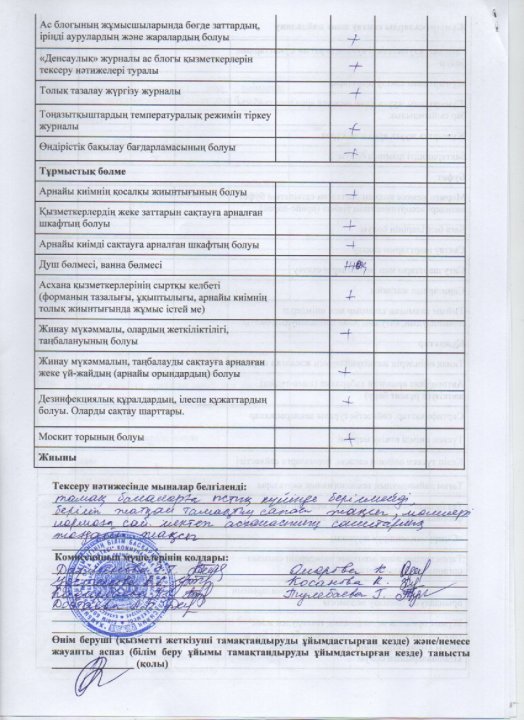 Ас блогының жұмысшыларында бөгде заттардың,
іріңді аурулардың және жаралардың болуы +
«Денсаулық» журналы ас блогы қызметкерлерін
тексеру нәтижелері туралы +
Толық тазалау жүргізу журналы +
Тоңазытқыштардың температуралық режимін тіркеу
журналы +
Өндірістік бақылау бағдарламасының болуы +
Тұрмыстық бөлме
Арнайы киімнің қосалқы жиынтығының болуы +
Қызметкерлердің жеке заттарын сақтауға арналған
шкафтың болуы +
Арнайы киімді сақтауға арналған шкафтың болуы +
Душ бөлмесі, ванна бөлмесі
Асхана қызметкерлерінің сыртқы келбеті
(форманың тазалығы, ұқыптылығы, арнайы киімнің
толық жиынтығында жұмыс істей ме) +
Жинау мүкәммалы, олардың жеткіліктілігі,
таңбалануының болуы +
Жинау мүкәммалын, таңбалауды сақтауға арналған
жеке үй-жайдың (арнайы орындардың) болуы +
Дезинфекциялық құралдардың, ілеспе құжаттардың
болуы. Оларды сақтау шарттары. +
Москит торының болуы +
Жиыны
Тексеру нәтижесінде мыналар белгіленді:
тамақ балаларға ыстық күйінде беріледі,
берілген тамақтың сапасы жақсы, мөлшері
нормаға сай мектеп асханасының санитарлық
жағдайы жақсы
Комиссияның мүшелерінің қолдары:
Омарова К.
Косанова К.
Тулебаева Г.
Өнім беруші (қызметті жеткізуші тамақтандыруды ұйымдастырған кезде) және/немесе
жауапты аспаз (білім беру ұйымы тамақтандыруды ұйымдастырған кезде) танысты
(қолы)